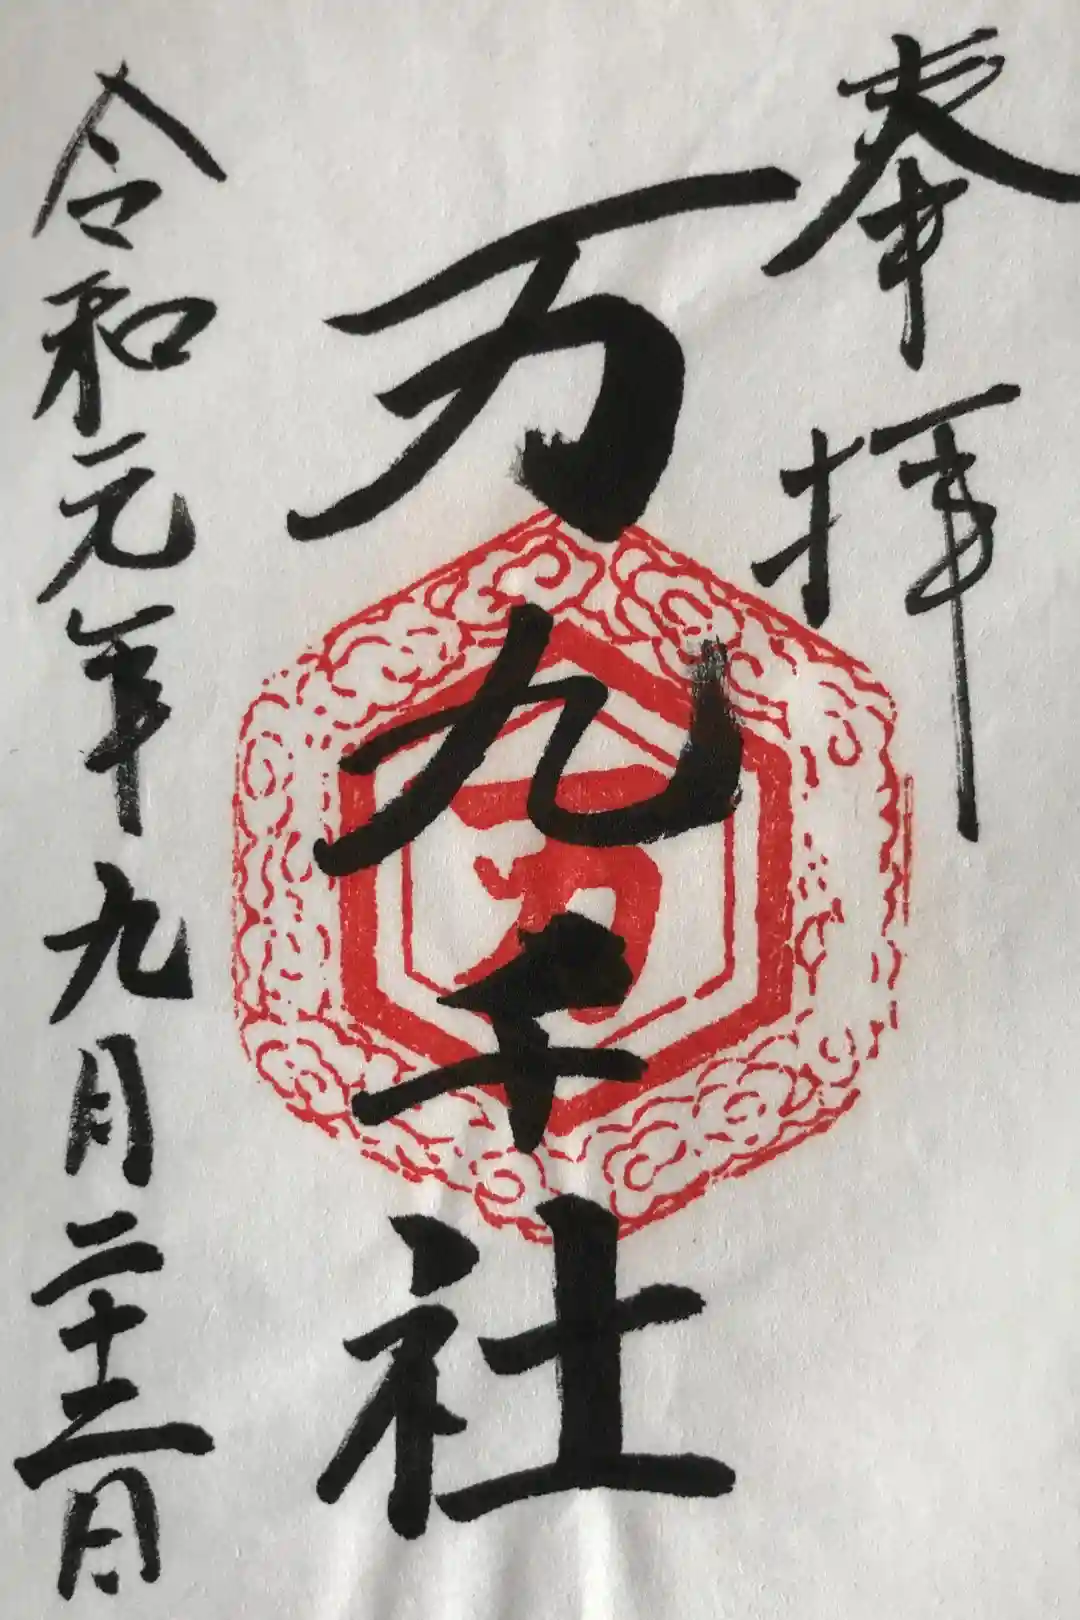 奉拝
万九千社
万
令和元年九月二十三日